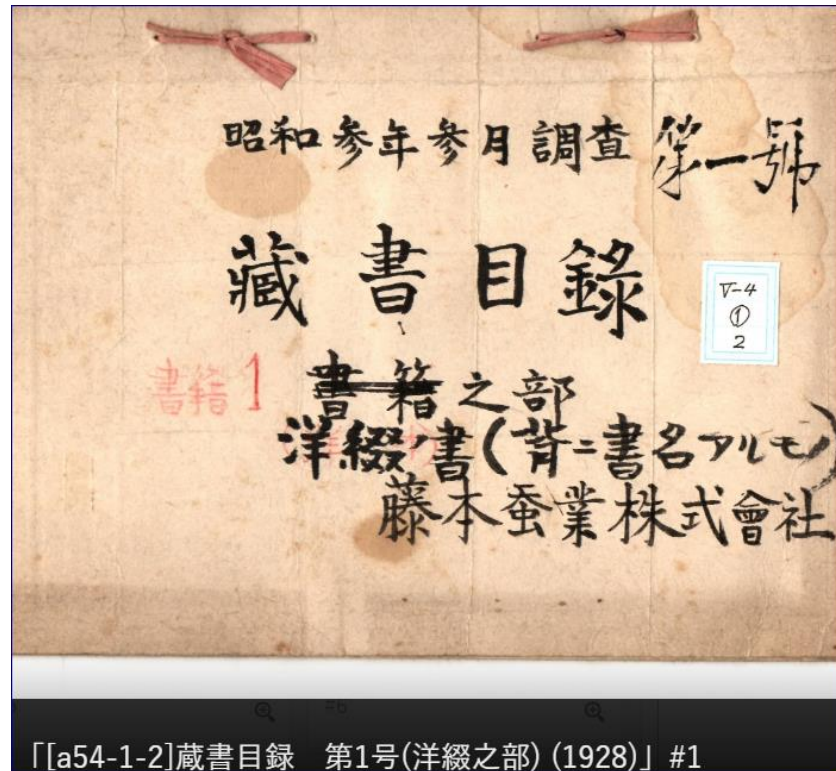 昭和参年参月調査 第一號
藏書目錄
▽-4
①
2
書籍1
書籍之部
洋綴ノ書(背ニ書名アルモノ)
藤本蚕業株式會社
#6
「[a54-1-2]蔵書目録　第1号(洋綴之部) (1928)」#1